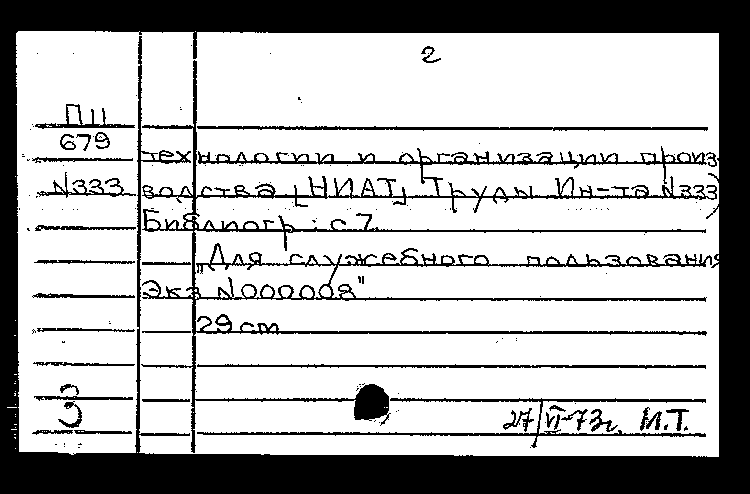 2
П11
679
технологии и организации произ-
N333 водства [НИАТ] Труды Ин-та N333)
Библиогр: с 7.
„Для служебного пользования
Экз N000008"
29 cm
З
27/VI-73г. И.Т.